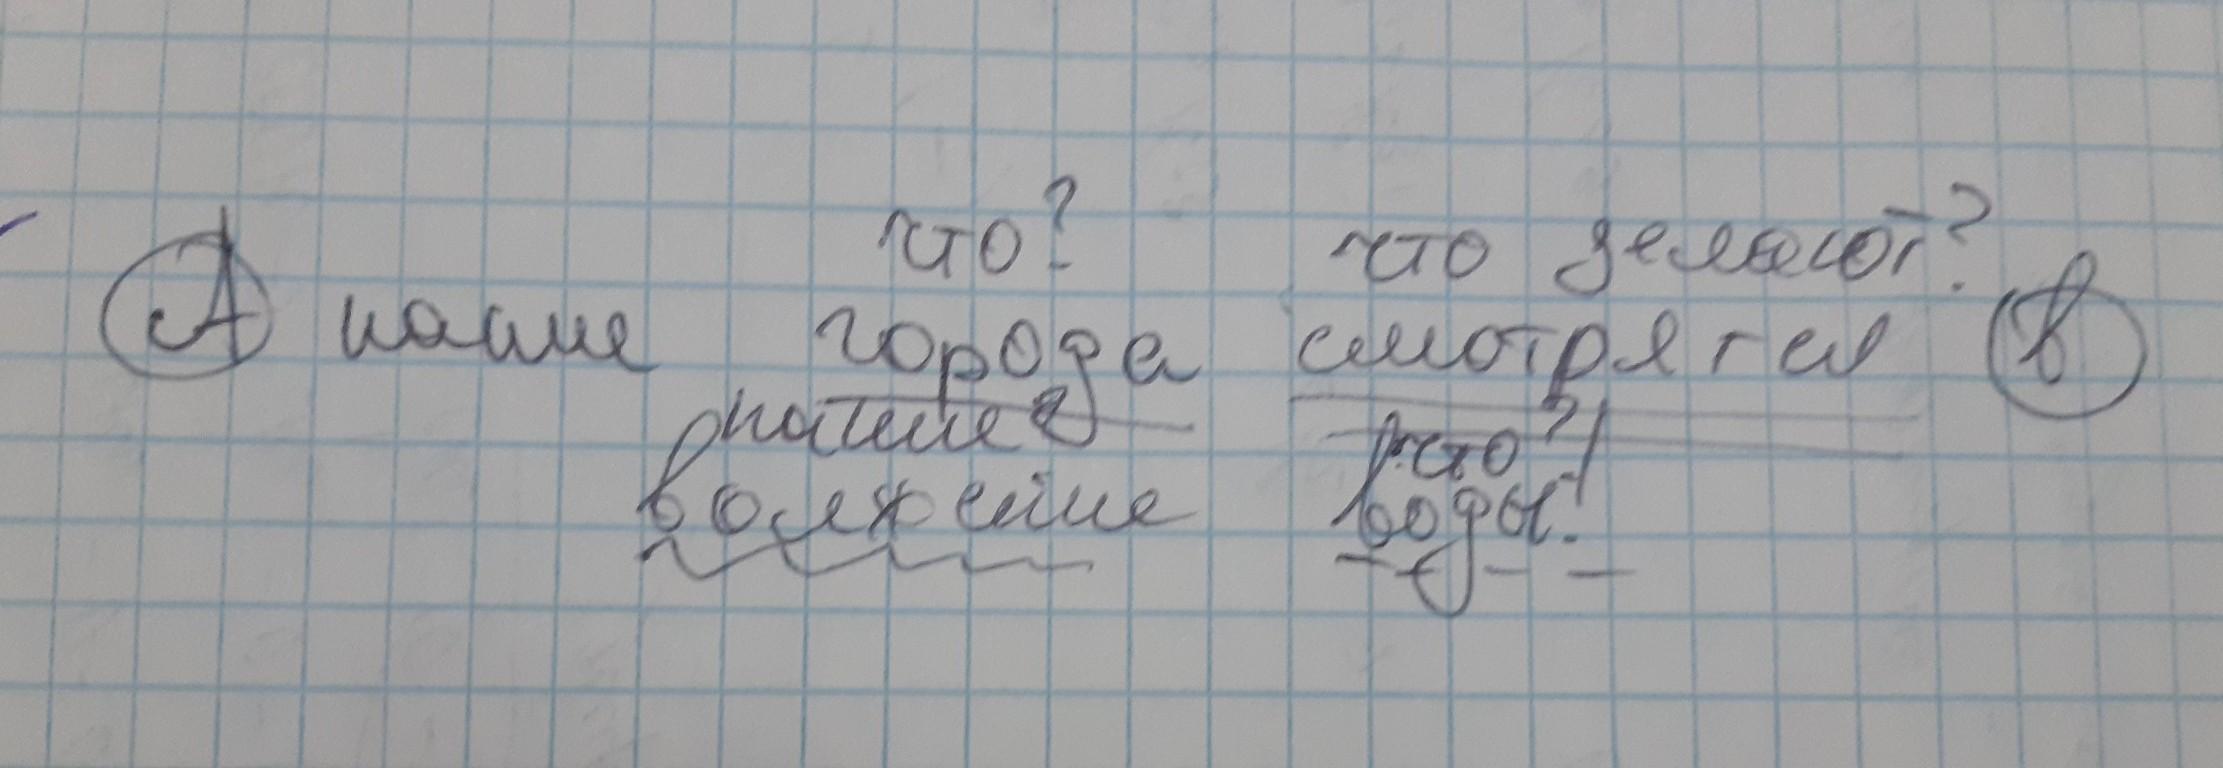 что? что делают?
А наши города смотрятся в
какие? во что?
волжские воды.